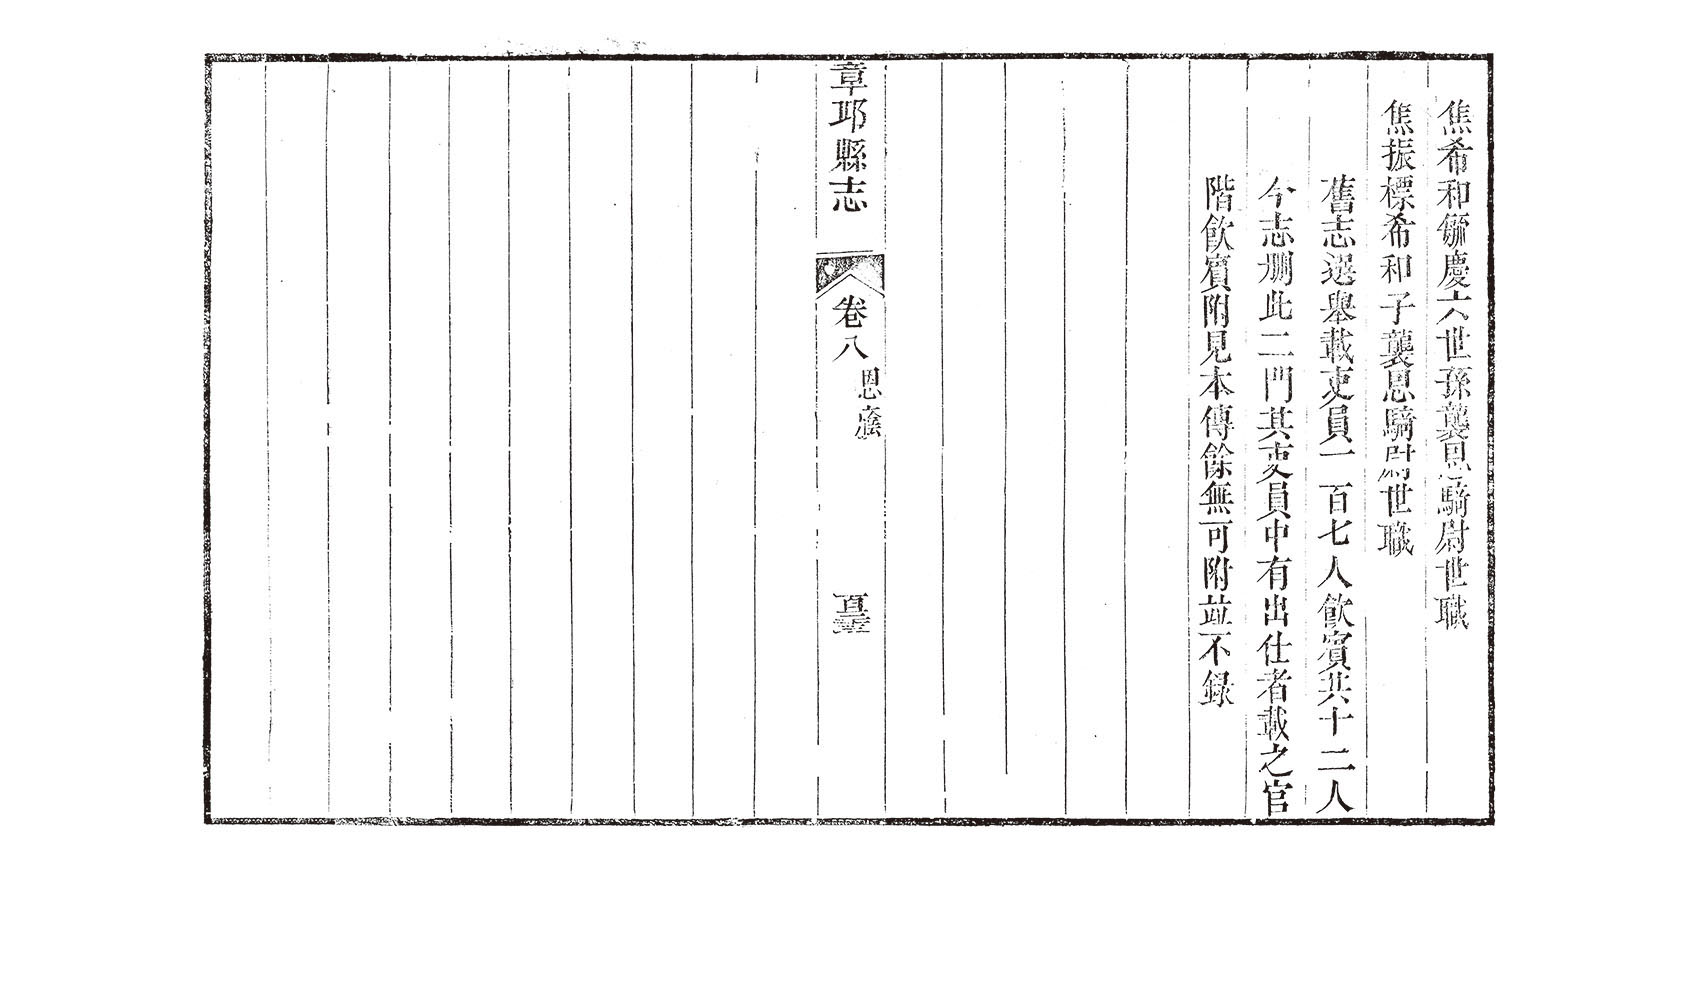 焦希和毓慶六世孫襲恩騎尉世職
焦振標希和子襲恩騎尉世職
舊志選舉載吏員一百七人飲賓共十二人
今志刪此二門其吏員中有出仕者載之官
階飲賓附見本傳餘無可附竝不録
章邱縣志
卷八
恩廕